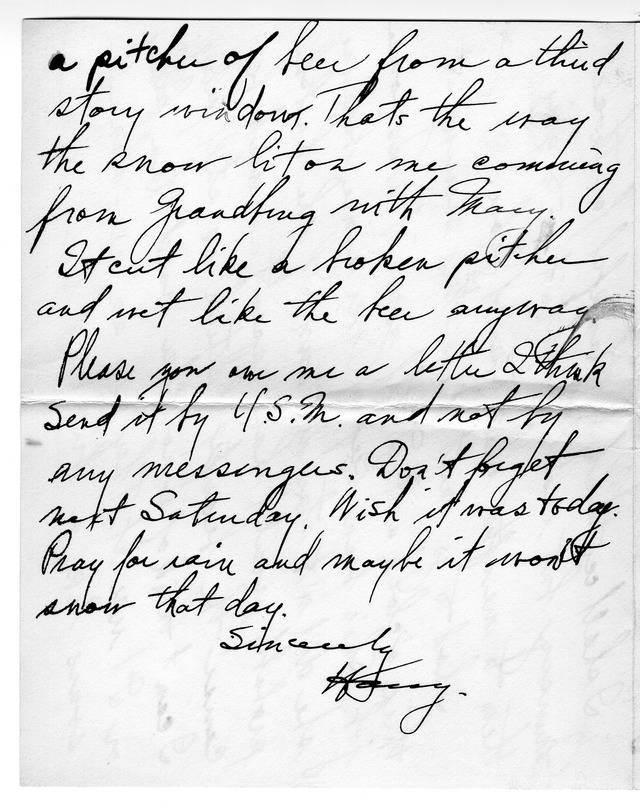 a pitcher of beer from a third
story window. Thats the way
the snow lit on me comming
from Grandbury with Mary.
It cut like a broken pitcher
and wet like the beer anyway.
Please you owe me a letter I think
send it by U.S.M. and not by
any messengers. Don't forget
next Saturday. Wish it was today.
Pray for rain and maybe it won't
snow that day.
Sincerely
Harry.